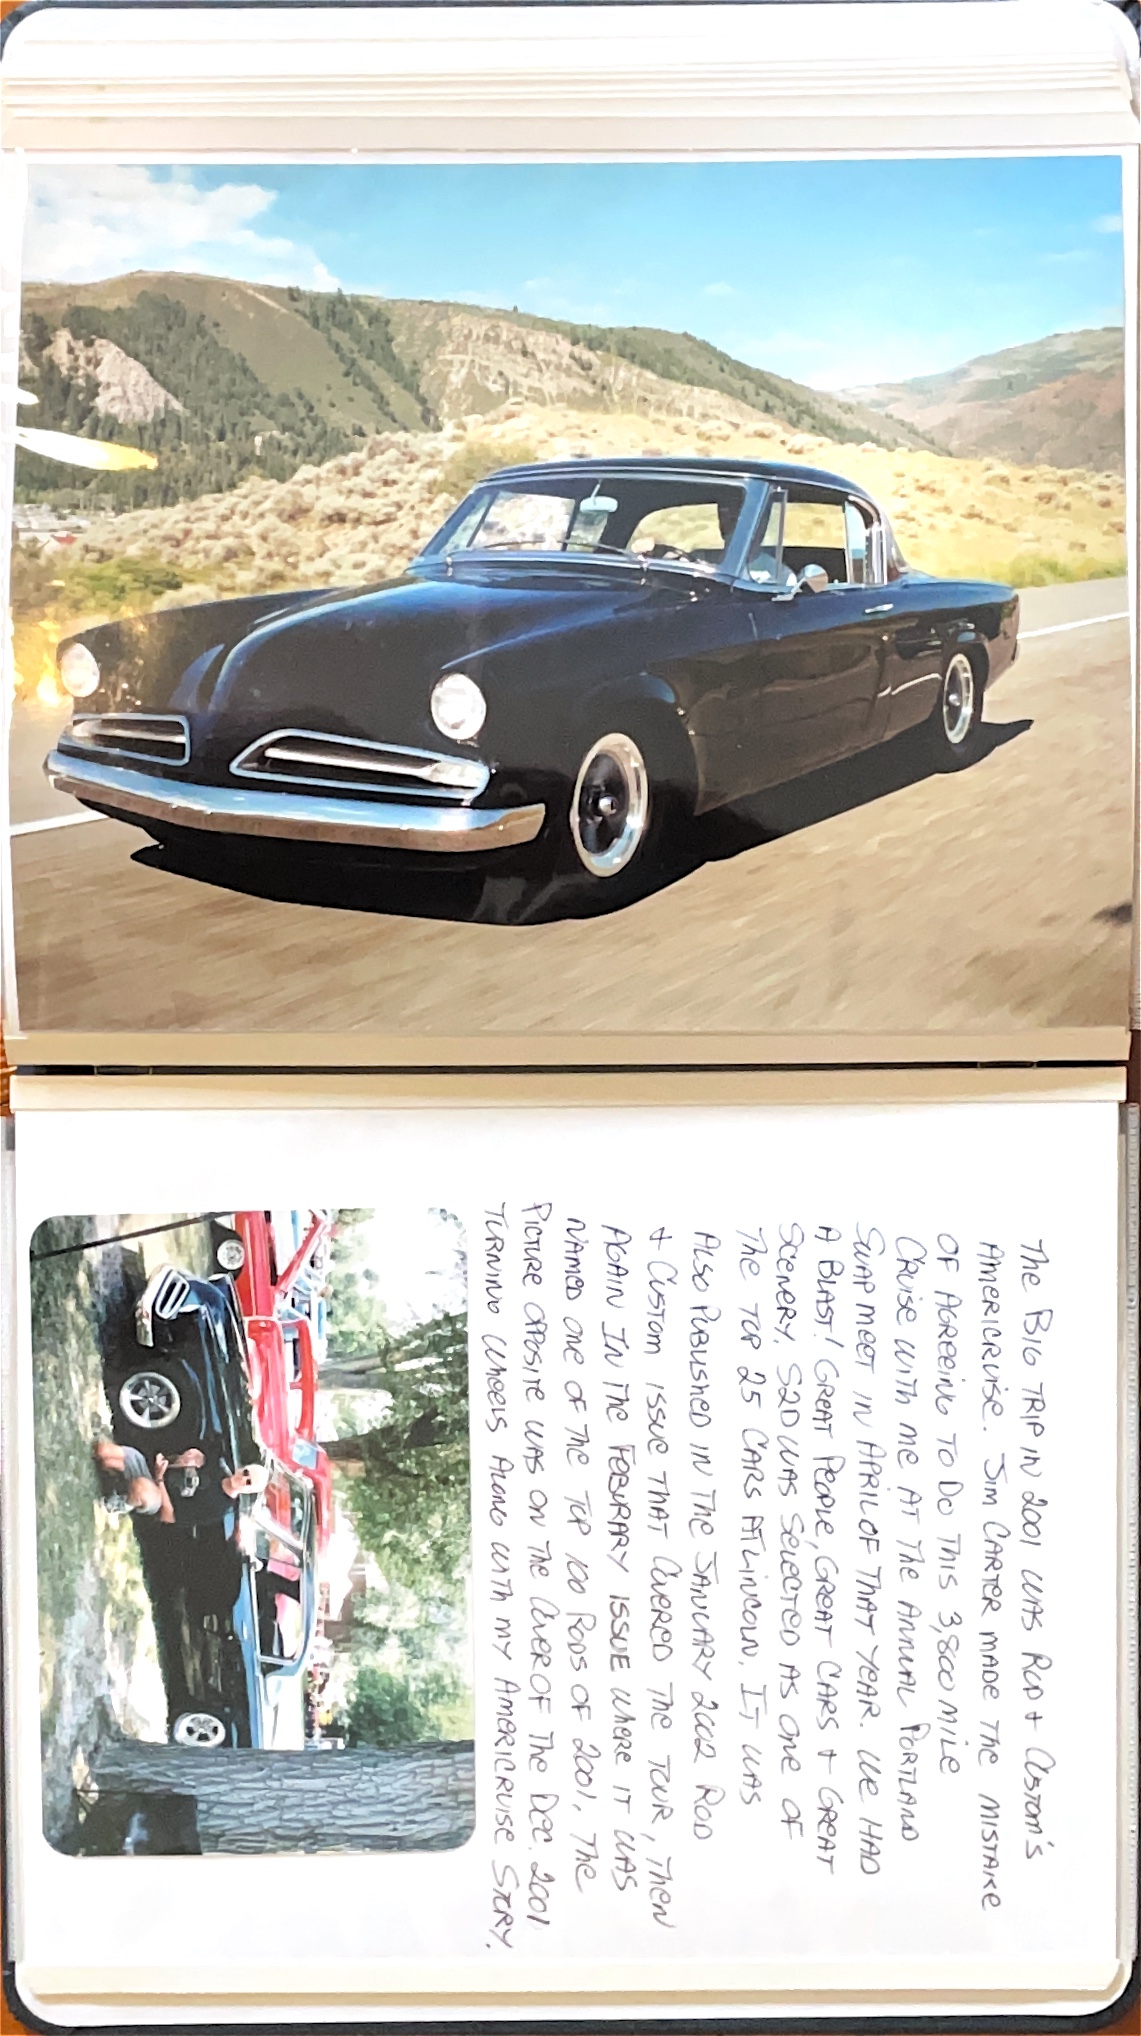 The BIG TRIP IN 2001 WAS ROD + CUSTOM'S
AMERICRUISE. JIM CARTER MADE THE MISTAKE
OF AGREEING TO DO THIS 3,800 MILE
CRUISE WITH ME AT THE ANNUAL PORTLAND
SWAP MEET IN APRIL OF THAT YEAR. WE HAD
A BLAST! GREAT PEOPLE, GREAT CARS + GREAT
SCENERY. S2D WAS SELECTED AS ONE OF
THE TOP 25 CARS AT LINCOLN. IT WAS
ALSO PUBLISHED IN THE JANUARY 2002 ROD
+ CUSTOM ISSUE THAT COVERED THE TOUR, THEN
AGAIN IN THE FEBURARY ISSUE WHERE IT WAS
NAMED ONE OF THE TOP 100 RODS OF 2001. THE
PICTURE OPPOSITE WAS ON THE COVER OF THE DEC. 2001
TURNING WHEELS ALONG WITH MY AMERICRUISE STORY.